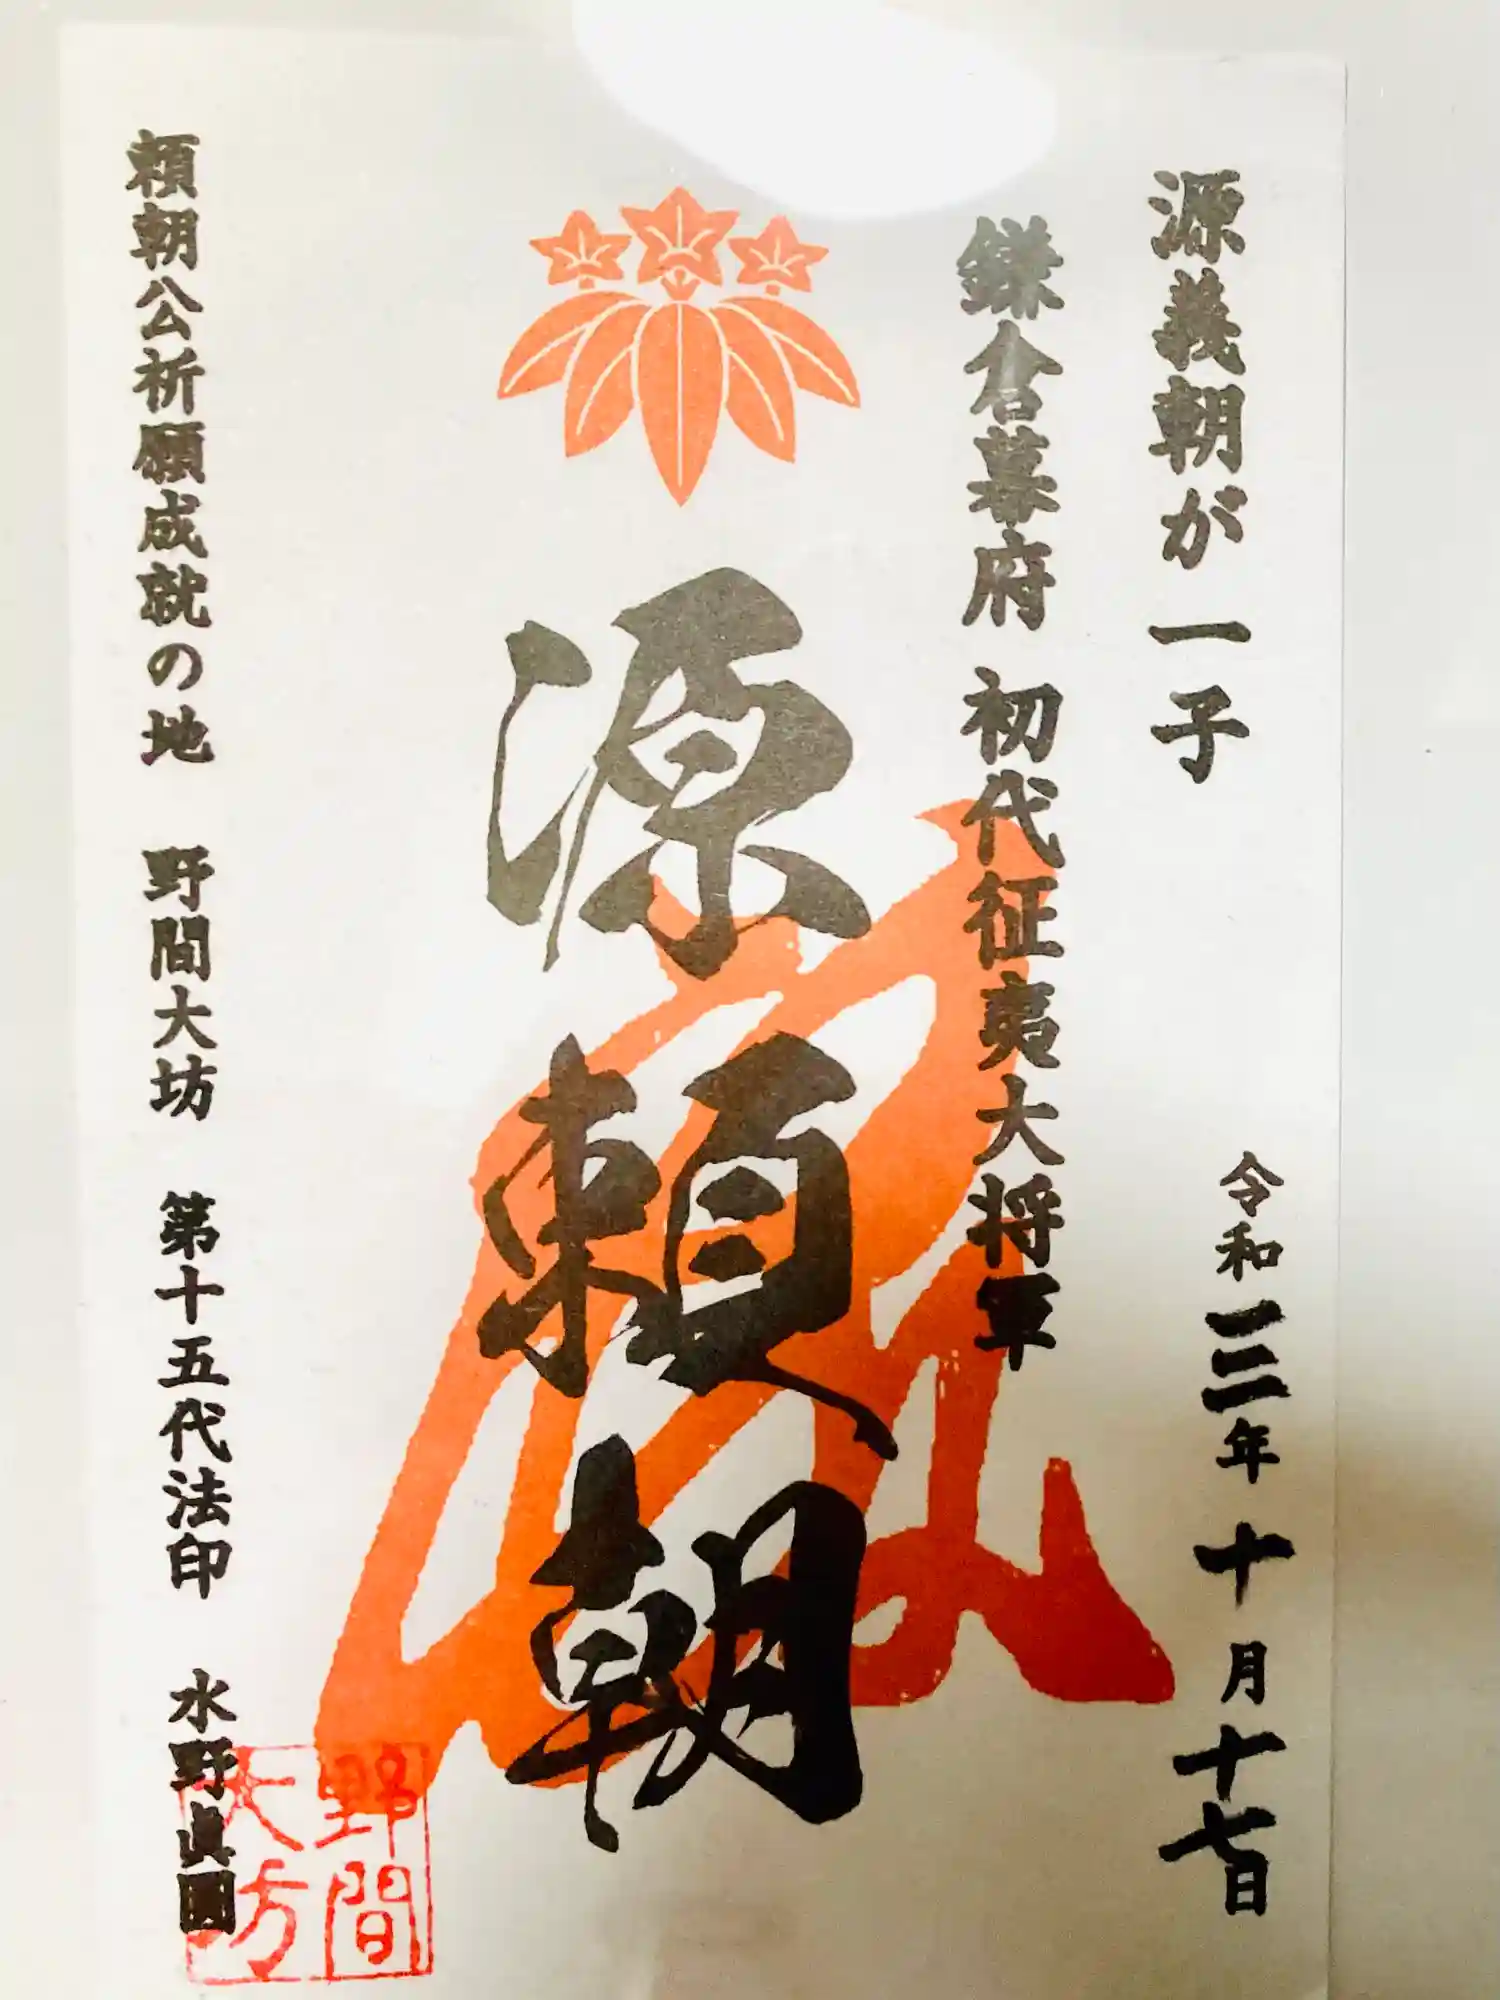 源義朝が一子
鎌倉幕府 初代征夷大将軍
令和三年十月十七日
源頼朝
頼朝公祈願成就の地 野間大坊 第十五代法印 水野眞圓
野間
大坊